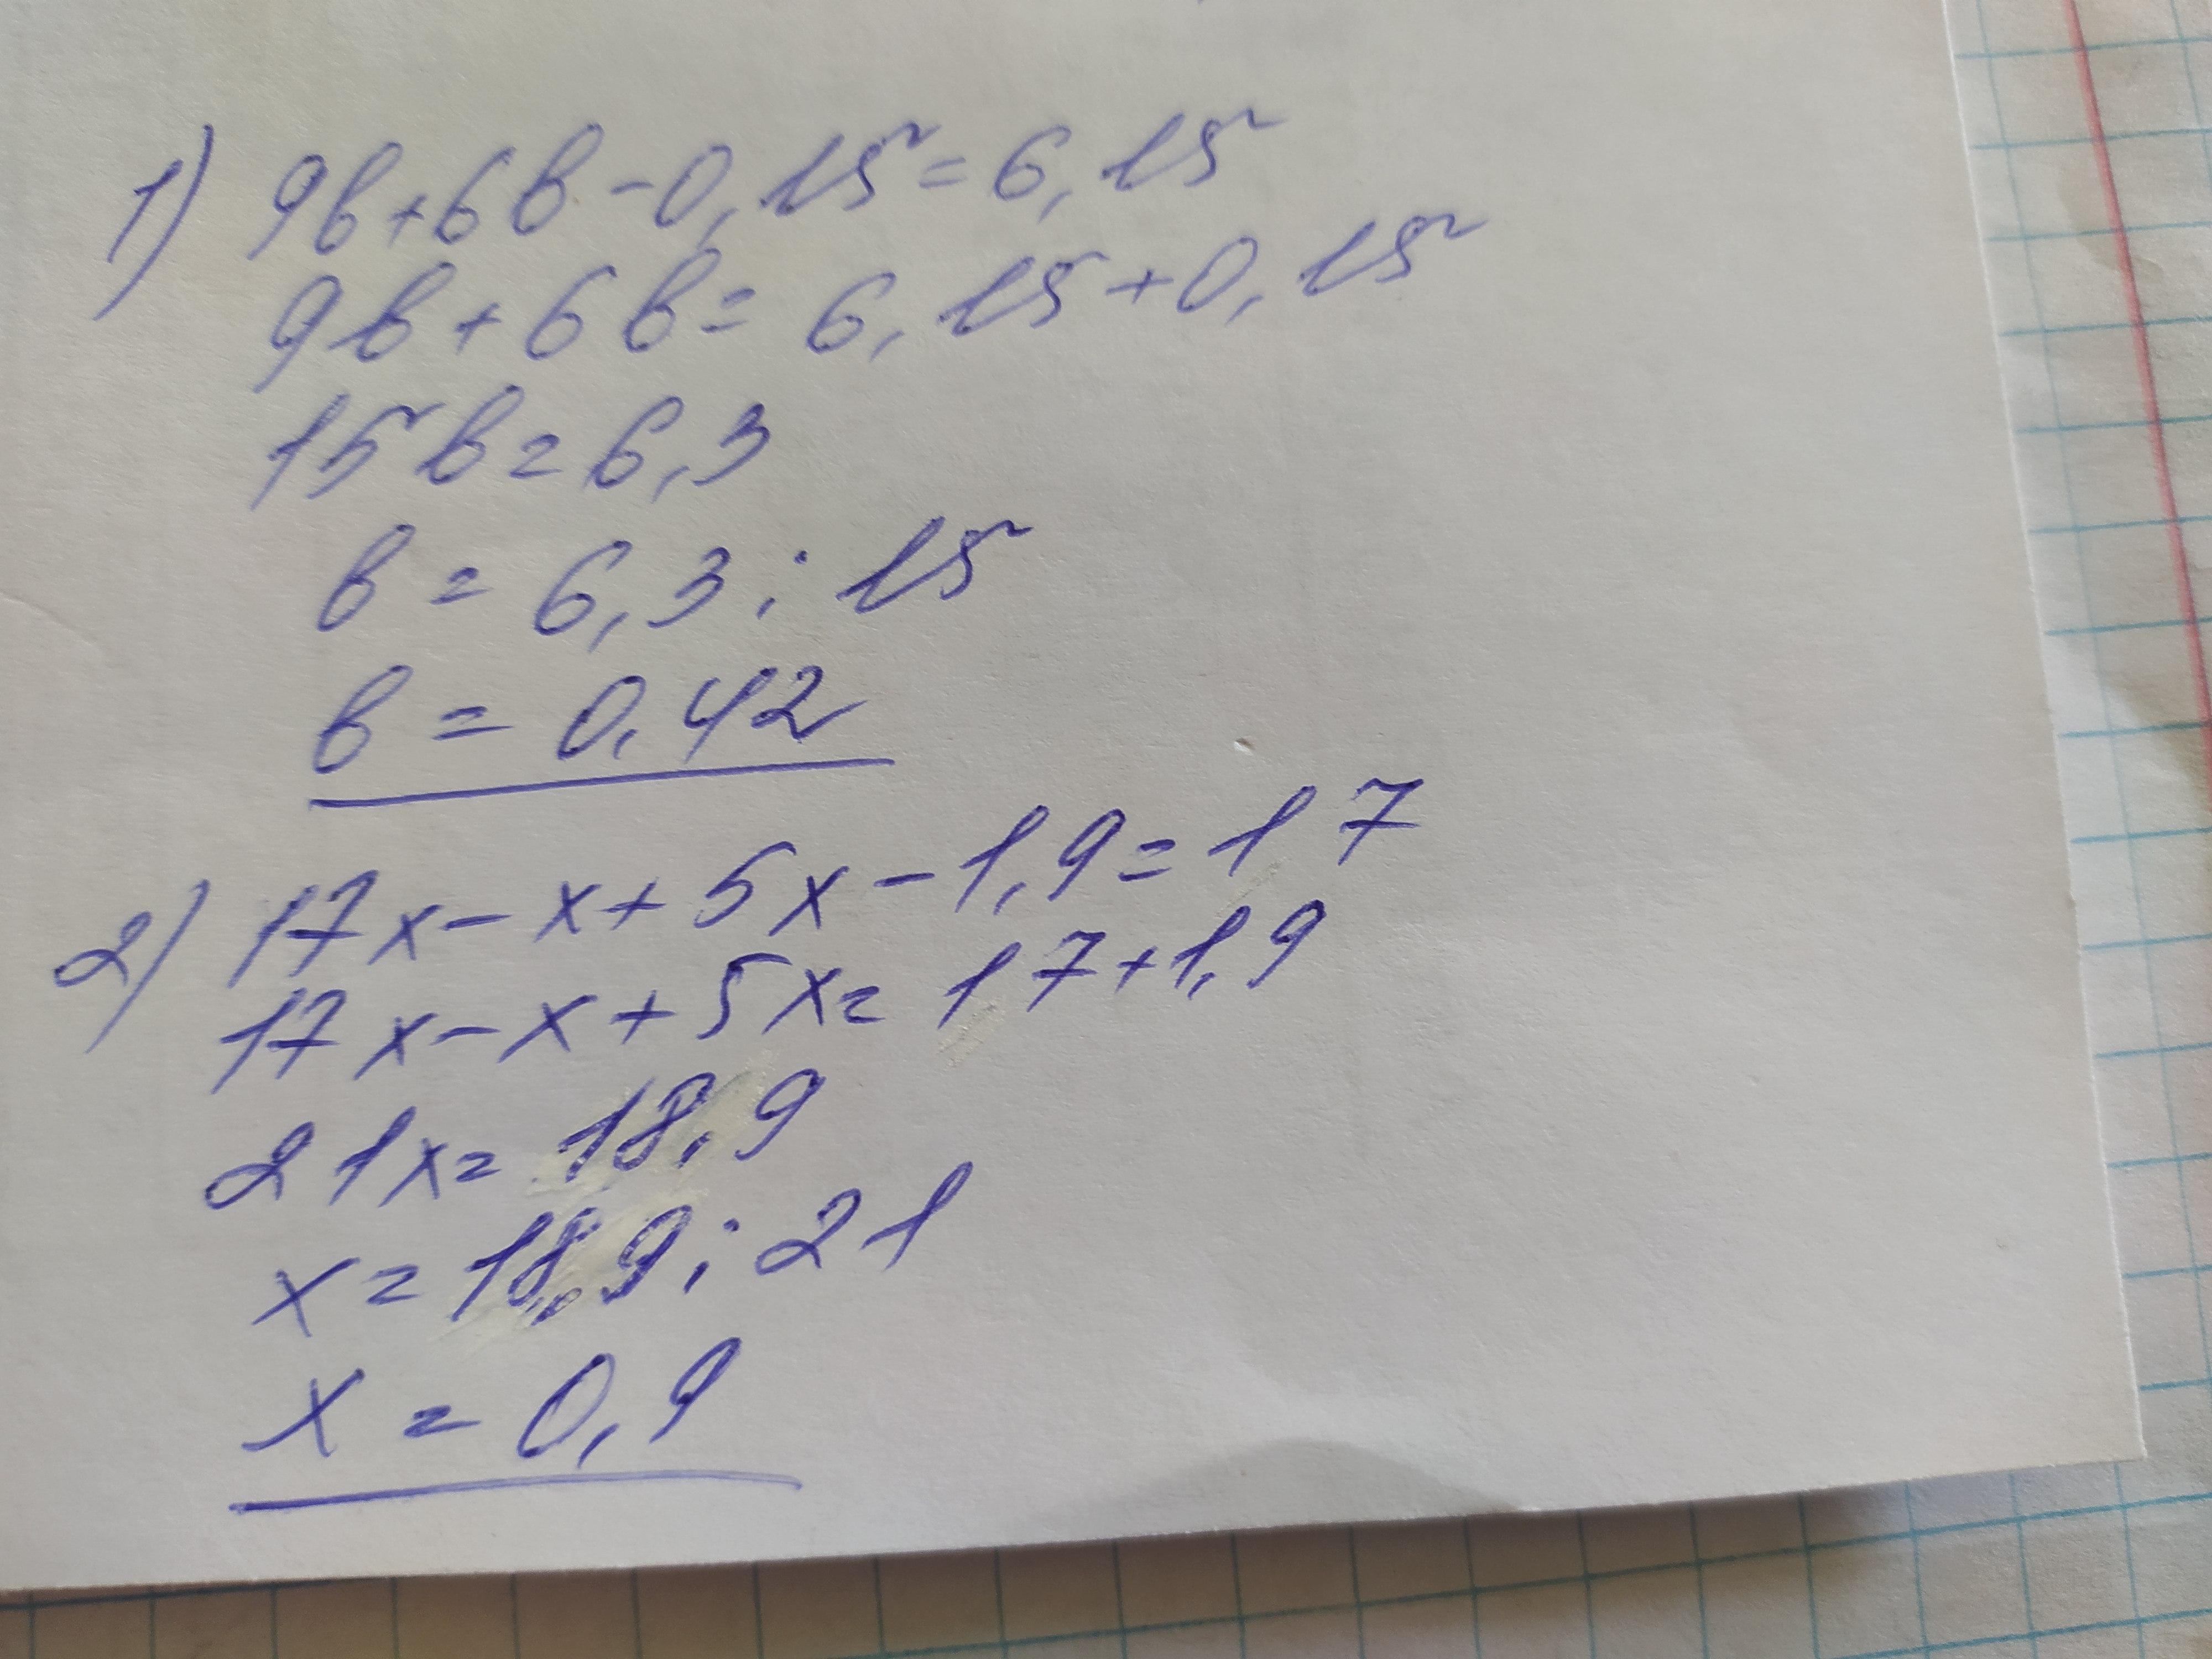 1) 9b+6b-0,15=6,15
9b+6b=6,15+0,15
15b=6,3
b=6,3:15
b=0,42
2) 17x-x+5x-1,9=17
17x-x+5x=17+1,9
21x=18,9
x=18,9:21
x=0,9